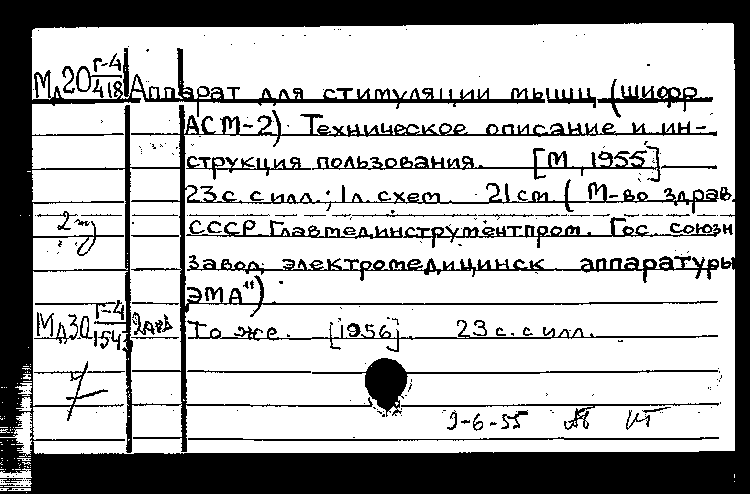 Мд20 г-4/418 Аппарат для стимуляции мышц (шифр
АСМ-2). Техническое описание и ин-
струкция пользования. [М., 1955]
23 с. с илл.; 1 л. схем. 21 см. (М-во здрав.
СССР. Главмединструментпром. Гос. союзн
завод электромедицинск аппаратуры
ЭМА").
Мд30 г-4/1543 То же. [1956]. 23 с. с илл.
9-6-55